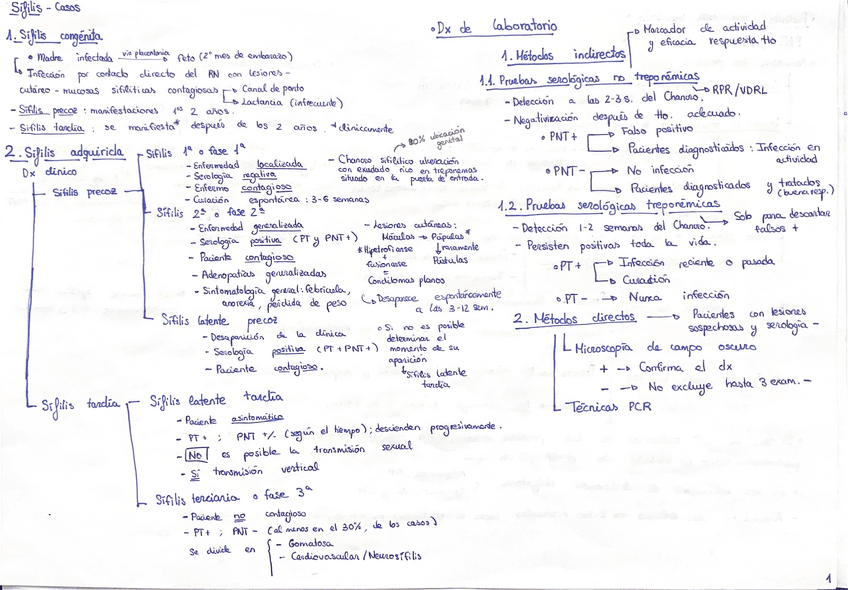 Sífilis - Casos
1. Sífilis congénita
• Madre infectada vía placentaria → feto (2º mes de embarazo)
• Infección por contacto directo del RN con lesiones
cutáneo - mucosas sifilíticas contagiosas → Canal de parto
→ Lactancia (infrecuente)
- Sífilis precoz : manifestaciones 1ºs 2 años.
- Sífilis tardía : se manifiesta* después de los 2 años. *clínicamente
2. Sífilis adquirida
Dx clínico
Sífilis precoz
- Sífilis 1ª o fase 1ª
- Enfermedad localizada
- Serología negativa
- Enfermo contagioso
- Curación espontánea : 3-6 semanas
80% ubicación
genital
- Chancro sifilítico ulceración
con exudado rico en treponemas
situado en la puerta de entrada.
- Sífilis 2ª o fase 2ª
- Enfermedad generalizada
- Serología positiva (PT y PNT+)
- Paciente contagioso
- Adenopatías generalizadas
- Sintomatología general: febrícula,
anorexia, pérdida de peso
- Lesiones cutáneas:
Máculas → Pápulas*
*Hipertrofiarse ↓ raramente
+
fusionarse Pústulas
=
Condilomas planos
↳ Desaparece espontáneamente
a las 3-12 sem.
Sífilis latente precoz
- Desaparición de la clínica
- Serología positiva (PT+PNT+)
- Paciente contagioso.
• Si no es posible
determinar el
momento de su
aparición
↳ Sífilis latente
tardía
Sífilis tardía
- Sífilis latente tardía
- Paciente asintomático
- PT+ ; PNT +/- (según el tiempo); descienden progresivamente.
- NO es posible la transmisión sexual
- Sí transmisión vertical
Sífilis terciaria o fase 3ª
- Paciente no contagioso
- PT+ ; PNT - (al menos en el 30%, de los casos)
Se divide en
- Gomatosa
- Cardiovascular / Neurosífilis
• Dx de laboratorio
1. Métodos indirectos
→ Marcador de actividad
y eficacia respuesta tto
1.1. Pruebas serológicas no treponémicas
→ RPR/VDRL
- Detección a las 2-3 s. del Chancro.
- Negativización después de tto. adecuado.
• PNT+ → Falso positivo
→ Pacientes diagnosticados : Infección en
actividad
• PNT- → No infección
→ Pacientes diagnosticados y tratados
(buena resp.)
1.2. Pruebas serológicas treponémicas
- Detección 1-2 semanas del Chancro.
→ Solo para descartar
falsos +
- Persisten positivas toda la vida.
• PT+ → Infección reciente o pasada
→ Curación
• PT- → Nunca infección
2. Métodos directos → Pacientes con lesiones
sospechosas y serología -
Microscopía de campo oscuro
+ → Confirma el dx
- → No excluye hasta 3 exam. -
Técnicas PCR
1